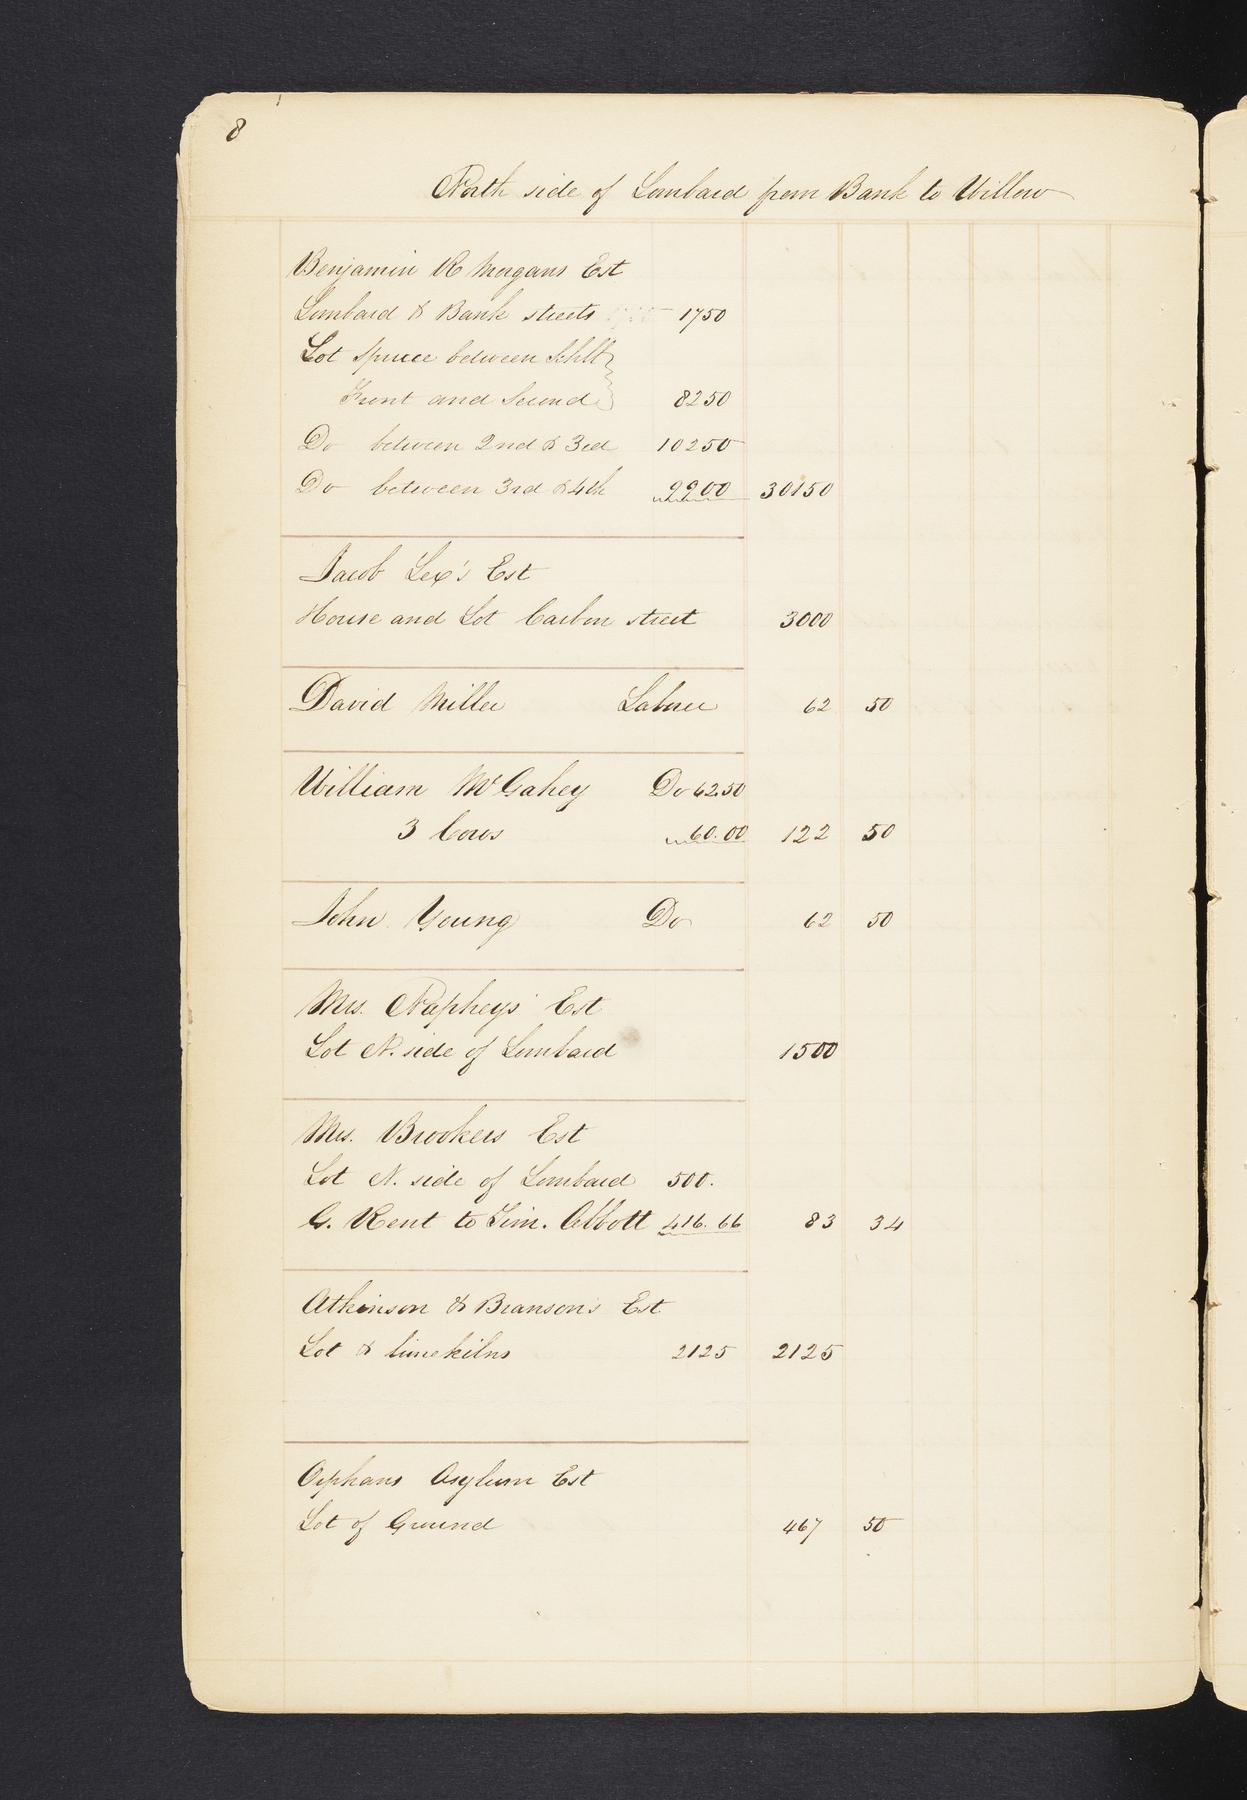 8
North side of Lombard from Bank to Willow
Benjamin R Morgans Est
Lombard & Bank streets 1750
Lot Spruce between Schll
Front and Second 8250
Do between 2nd & 3rd 10250
Do between 3rd & 4th 9900 30150
Jacob Lex's Est
House and Lot Carbon street 3000
David Miller Laborer 62 50
William McGahey Do 62.50
3 Cows 60.00 122 50
John Young Do 62 50
Mrs. Napheys Est
Lot N. side of Lombard 1500
Mrs. Brookers Est
Lot N. side of Lombard 500.
G. Rent to Tim. Abbott 416.66 83 34
Atkinson & Branson's Est
Lot & limekilns 2125 2125
Orphans Asylum Est
Lot of Ground 467 50